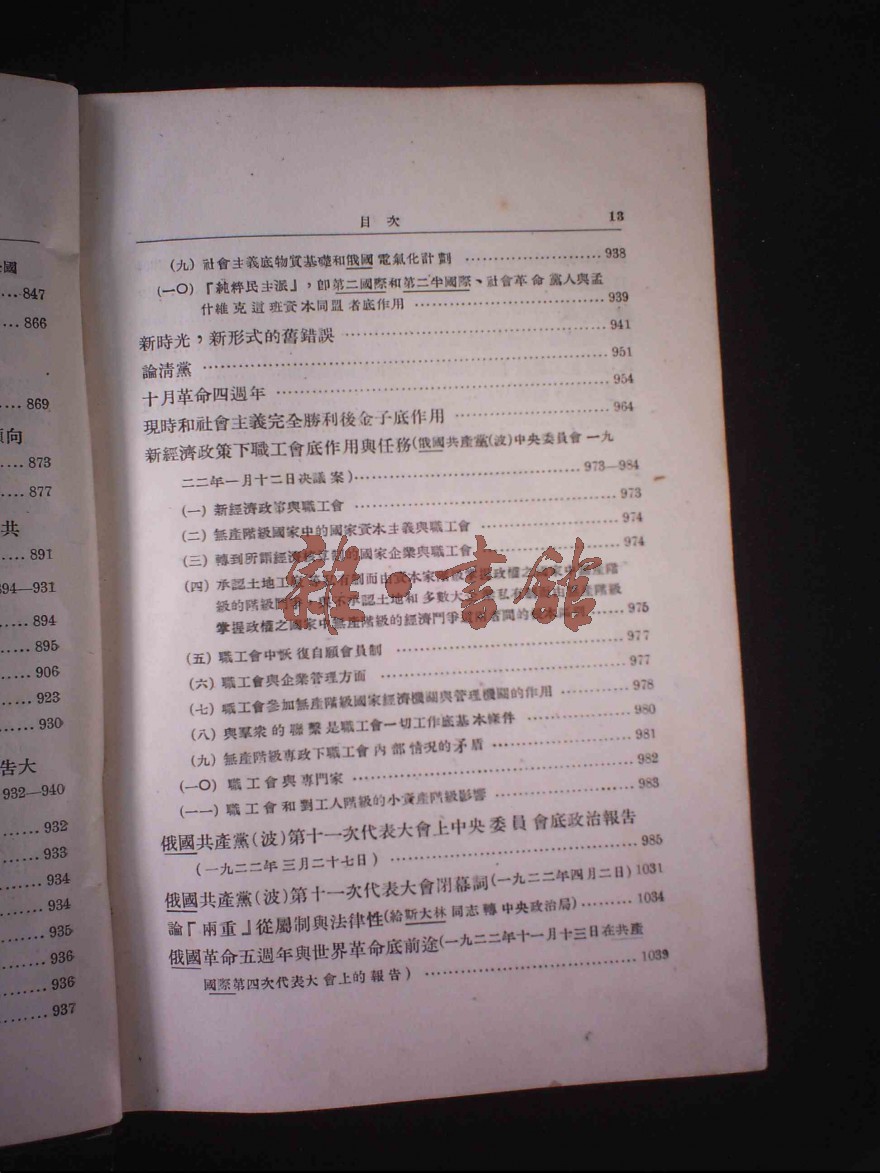 國
847
866
869
向
873
877
共
891
894—931
894
895
906
923
930
告大
932—940
932
933
934
934
935
936
936
937
目次 13
(九) 社會主義底物質基礎和俄國電氣化計劃 938
(一〇)『純粹民主派』,卽第二國際和第二半國際、社會革命黨人與孟
什維克這班資本同盟者底作用 939
新時光,新形式的舊錯誤 941
論清黨 951
十月革命四週年 954
現時和社會主義完全勝利後金子底作用 964
新經濟政策下職工會底作用與任務(俄國共產黨(波)中央委員會一九
二二年一月十二日決議案) 973—984
(一) 新經濟政策與職工會 973
(二) 無產階級國家中的國家資本主義與職工會 974
(三) 轉到所謂經濟核算制的國家企業與職工會 974
(四) 承認土地工廠等私有制而由資本家階級掌握政權之國家中無產階
級的階級鬥爭,與不承認土地和多數大
掌握政權之國家中無產階級的經濟鬥爭這兩者間的 975
(五) 職工會中恢復自願會員制 977
(六) 職工會與企業管理方面 977
(七) 職工會參加無產階級國家經濟機關與管理機關的作用 978
(八) 與羣衆的聯繫是職工會一切工作底基本條件 980
(九) 無產階級專政下職工會內部情況的矛盾 981
(一〇) 職工會與專門家 982
(一一) 職工會和對工人階級的小資產階級影響 983
俄國共產黨(波)第十一次代表大會上中央委員會底政治報告
(一九二二年三月二十七日) 985
俄國共產黨(波)第十一次代表大會閉幕詞(一九二二年四月二日) 1031
論『兩重』從屬制與法律性(給斯大林同志轉中央政治局) 1034
俄國革命五週年與世界革命底前途(一九二二年十一月十三日在共產
國際第四次代表大會上的報告) 1039
雜·書館